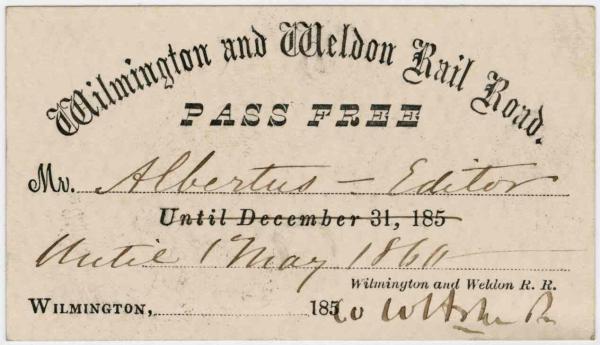 Wilmington and Weldon Rail Road.
PASS FREE
Mr. Albertus - Editor
Until December 31, 185
Until 1 May 1860
Wilmington and Weldon R. R.
WILMINGTON, 185